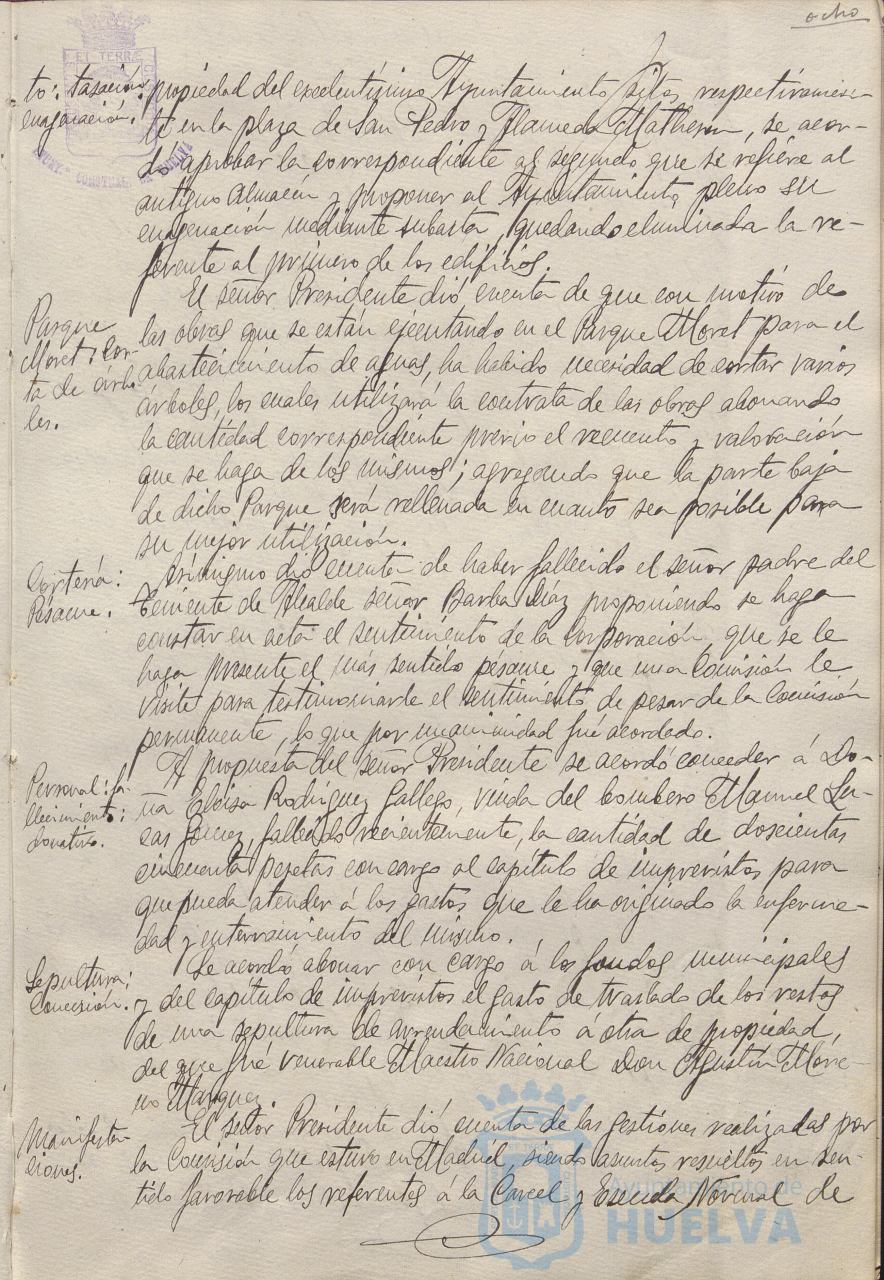 ocho
to: tasación
enagenación:
propiedad del excelentísimo Ayuntamiento sitos respectivamen-
te en la plaza de San Pedro y Alameda Matheson, se acor-
dó aprobar la correspondiente al segundo que se refiere al
antiguo Almacen y proponer al Ayuntamiento pleno su
enagenación mediante subasta, quedando eliminada la re-
ferente al primero de los edificios.
Parque
Moret: Cor-
ta de árbo-
les.
El señor Presidente dió cuenta de que con motivo de
las obras que se están ejecutando en el Parque Moret para el
abastecimiento de aguas, ha habido necesidad de cortar varios
árboles, los cuales utilizará la contrata de las obras abonando
la cantidad correspondiente previo el recuento y valoración
que se haga de los mismos; agregando que la parte baja
de dicho Parque será rellenada en cuanto sea posible para
su mejor utilización.
Cortesía:
Pésame.
Asimismo dió cuenta de haber fallecido el señor padre del
Teniente de Alcalde señor Barba Díaz proponiendo se haga
constar en acta el sentimiento de la Corporación, que se le
haga presente el más sentido pésame y que una Comisión le
visite para testimoniarle el sentimiento de pesar de la Comisión
permanente, lo que por unanimidad fué acordado.
Personal: fa-
llecimiento:
donativo.
A propuesta del señor Presidente se acordó conceder á Do-
ña Eloisa Rodríguez Gallego, viuda del bombero Manuel Lu-
cas Gomez, fallecido recientemente, la cantidad de doscientas
cincuenta pesetas con cargo al capítulo de imprevistos para
que pueda atender á los gastos que le ha originado la enferme-
dad y enterramiento del mismo.
Sepultura:
Concesión.
Se acordó abonar con cargo á los fondos municipales
y del capítulo de imprevistos el gasto de traslado de los restos
de una sepultura de arrendamiento á otra de propiedad,
del que fué venerable Maestro Nacional Don Agustín More-
no Marquez.
Manifesta-
ciones.
El señor Presidente dió cuenta de las gestiones realizadas por
la Comisión que estuvo en Madrid, siendo asuntos resueltos en sen-
tido favorable los referentes á la Carcel y Escuela Normal de
Ayuntamiento de
HUELVA